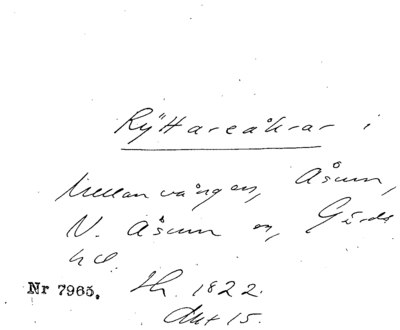 Ryttareåkrar i
Mellanvången, Åsum,
N. Åsum sn, Gärds
hd.
Nr 7965. Sk. 1822.
Akt 15.